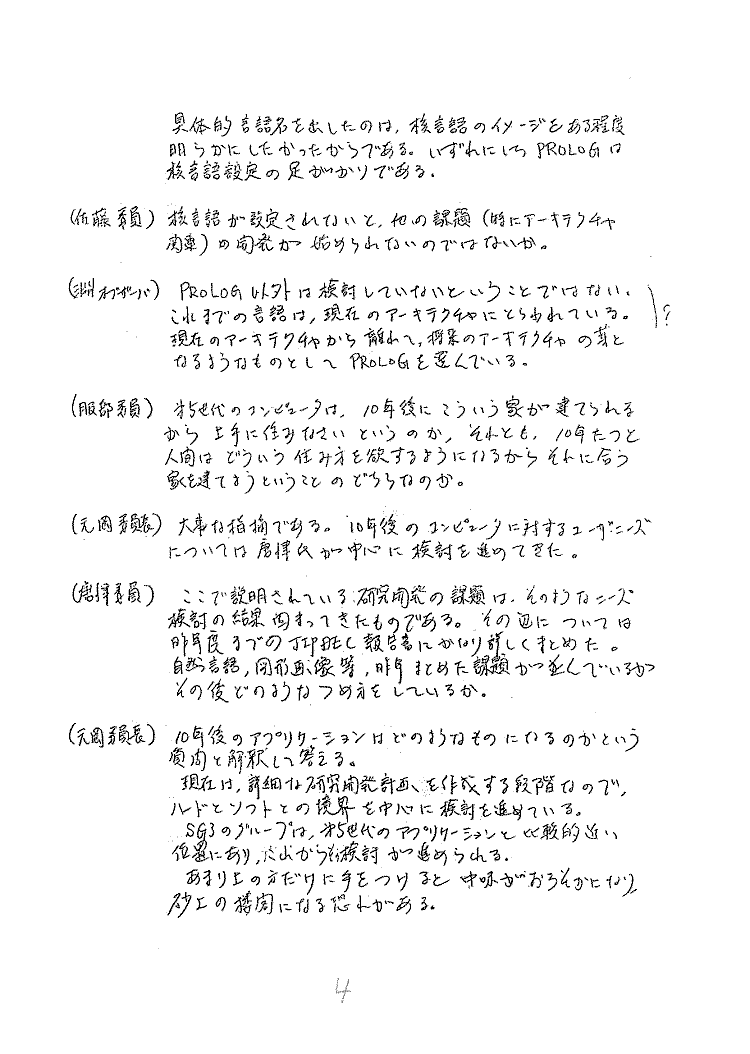 具体的言語名を出したのは、核言語のイメージをある程度
明らかにしたかったからである。いずれにしろPROLOGは
核言語設定の足がかりである。
(佐藤委員) 核言語が設定されないと、他の課題(特にアーキテクチャ
関連)の開発が始められないのではないか。
(渕オブザーバ) PROLOG以外は検討していないということではない。
これまでの言語は、現在のアーキテクチャにとらわれている。
現在のアーキテクチャから離れて、将来のアーキテクチャの芽と
なるようなものとしてPROLOGを選んでいる。
?
(服部委員) 第5世代のコンピュータは、10年後にこういう家が建てられる
から上手に住みなさいというのか、それとも、10年たつと
人間はどういう住み方を欲するようになるからそれに合う
家を建てようということのどちらなのか。
(元岡委員長) 大事な指摘である。10年後のコンピュータに対するユーザニーズ
については唐津氏が中心に検討を進めてきた。
(唐津委員) ここで説明されている研究開発の課題は、そのようなニーズ
検討の結果固まってきたものである。その辺については
昨年度までのJIPDEC報告書にかなり詳しくまとめた。
自然言語,図形画像等,昨年まとめた課題がつ並んでいるが
その後どのようなつめ方をしているか。
(元岡委員長) 10年後のアプリケーションはどのようなものになるのかという
質問と解釈して答える。
現在は,詳細な研究開発計画を作成する段階なので,
ハードとソフトとの境界を中心に検討を進めている。
SG3のグループは,第5世代のアプリケーションと比較的近い
位置にあり,だからも検討が進められる。
あまり上の方だけに手をつけると中味がおろそかになり,
砂上の楼閣になる恐れがある。
4